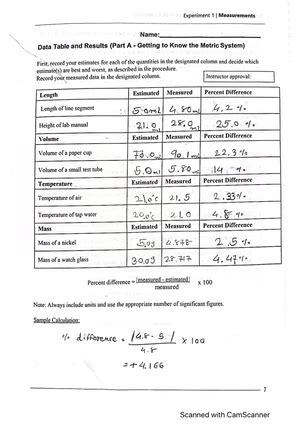 Experiment 1 | Measurements
Name:
Data Table and Results (Part A - Getting to Know the Metric System)
First, record your estimates for each of the quantities in the designated column and decide which
estimate(s) are best and worst, as described in the procedure.
Record your measured data in the designated column.
Instructor approval:
Length Estimated Measured Percent Difference
Length of line segment 5.0ml 4.80ml 4.2 %
Height of lab manual 21.0 28.0 25.0 %
Volume Estimated Measured Percent Difference
Volume of a paper cup 70.0ml 90.1ml 22.3 %
Volume of a small test tube 5.0ml 5.80ml 14 %
Temperature Estimated Measured Percent Difference
Temperature of air 21.0°C 21.5 2.33%
Temperature of tap water 20.0°C 21.0 4.8 %
Mass Estimated Measured Percent Difference
Mass of a nickel 5.0g 4.878 2.5 %
Mass of a watch glass 30.0g 28.717 4.47%
Percent difference = |measured - estimated| x 100
measured
Note: Always include units and use the appropriate number of significant figures.
Sample Calculation:
% difference = |4.8 - 5.| x 100
4.8
= + 4.166
7
Scanned with CamScanner